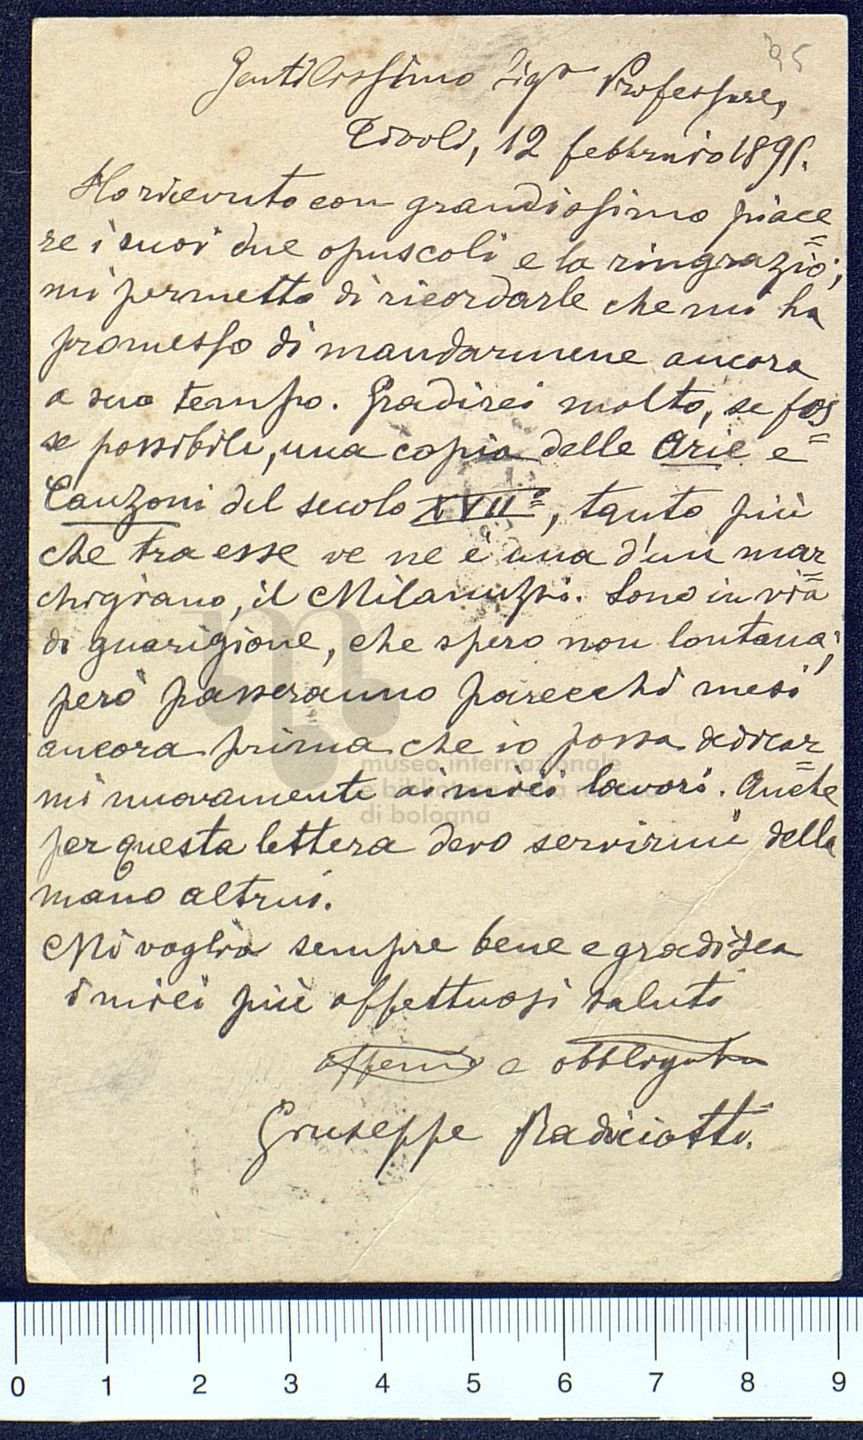 95
Gentilissimo Sigr Professore,
Tivoli, 12 febbraio 1895.
Ho ricevuto con grandissimo piace=
re i suoi due opuscoli e la ringrazio;
mi permetto di ricordarle che mi ha
promesso di mandarmene ancora
a suo tempo. Gradirei molto, se fos=
se possibile, una copia delle Arie e
Canzoni del secolo XVII°, tanto più
che tra esse ve ne è una d'un mar=
chigiano, il Milanuzzi. Sono in via
di guarigione, che spero non lontana;
però passeranno parecchi mesi
ancora prima che io possa dedicar=
mi nuovamente ai miei lavori. Anche
per questa lettera devo servirmi della
mano altrui.
Mi voglia sempre bene e gradisca
i miei più affettuosi saluti
affemo e obbligato
Giuseppe Radiciotti.
museo internazionale
e biblioteca della musica
di bologna
0 1 2 3 4 5 6 7 8 9